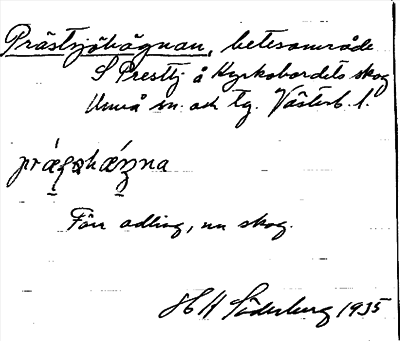 Prästsjöhägnan, betesområde
S Prestj å Kyrkobordets skog
Umeå sn. och tg. Västerb. l.
Förr odling, nu skog.
H K Söderberg 1935